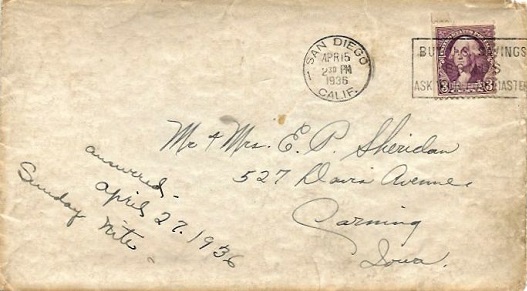 SAN DIEGO
APR 15
2 30 PM
1936
CALIF.
1
BUY U.S. SAVINGS
ASK YOUR POSTMASTER
3
Mr & Mrs. E. P. Sheridan
527 Davis Avenue,
Corning
Iowa.
answered-
april 27. 1936
Sunday Nite